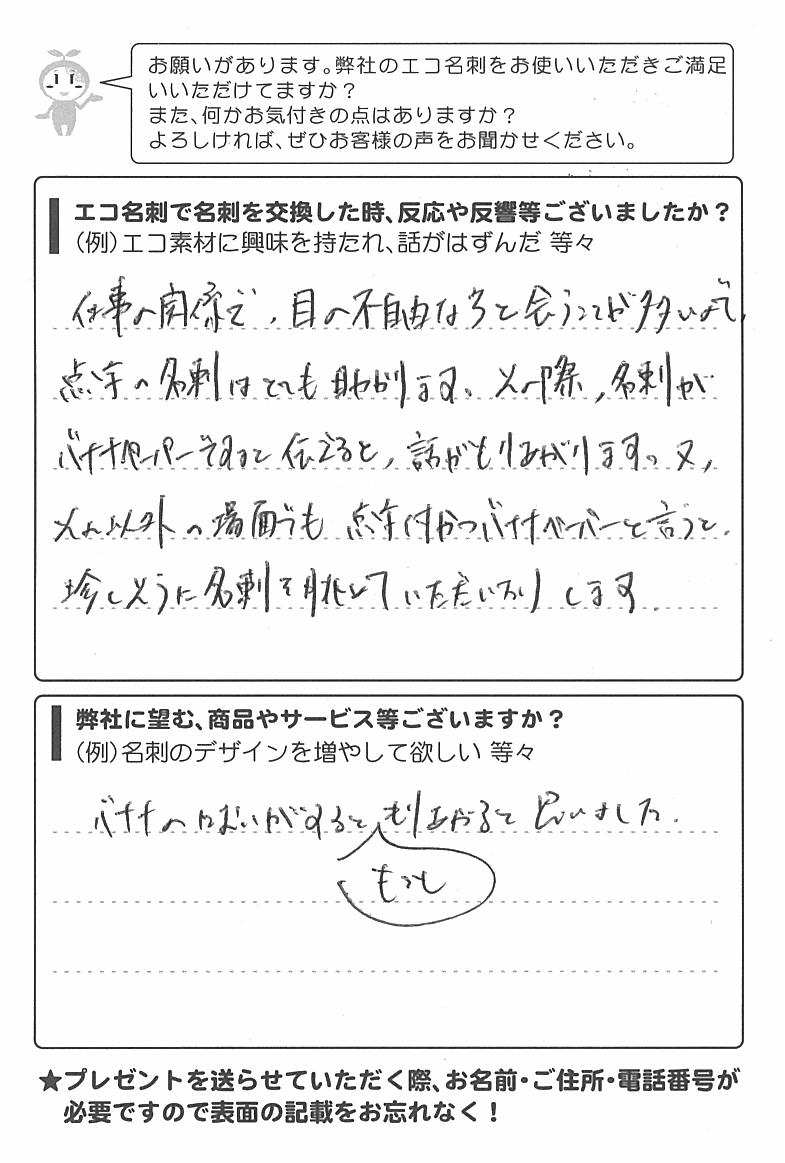 お願いがあります。弊社のエコ名刺をお使いいただきご満足
いいただけてますか？
また、何かお気付きの点はありますか？
よろしければ、ぜひお客様の声をお聞かせください。
エコ名刺で名刺を交換した時、反応や反響等ございましたか？
（例）エコ素材に興味を持たれ、話がはずんだ 等々
仕事の関係で、目の不自由な方と会うことが多いので、
点字の名刺はとても助かります。その際、名刺が
バナナペーパーですよと伝えると、話がもりあがります。又、
それ以外の場面でも 点字付かつバナナペーパーと言うと、
珍しそうに名刺を眺めていただいたりします。
弊社に望む、商品やサービス等ございますか？
（例）名刺のデザインを増やして欲しい 等々
バナナのにおいがすると もりあがると思いました。
もっと
★プレゼントを送らせていただく際、お名前・ご住所・電話番号が
必要ですので表面の記載をお忘れなく！